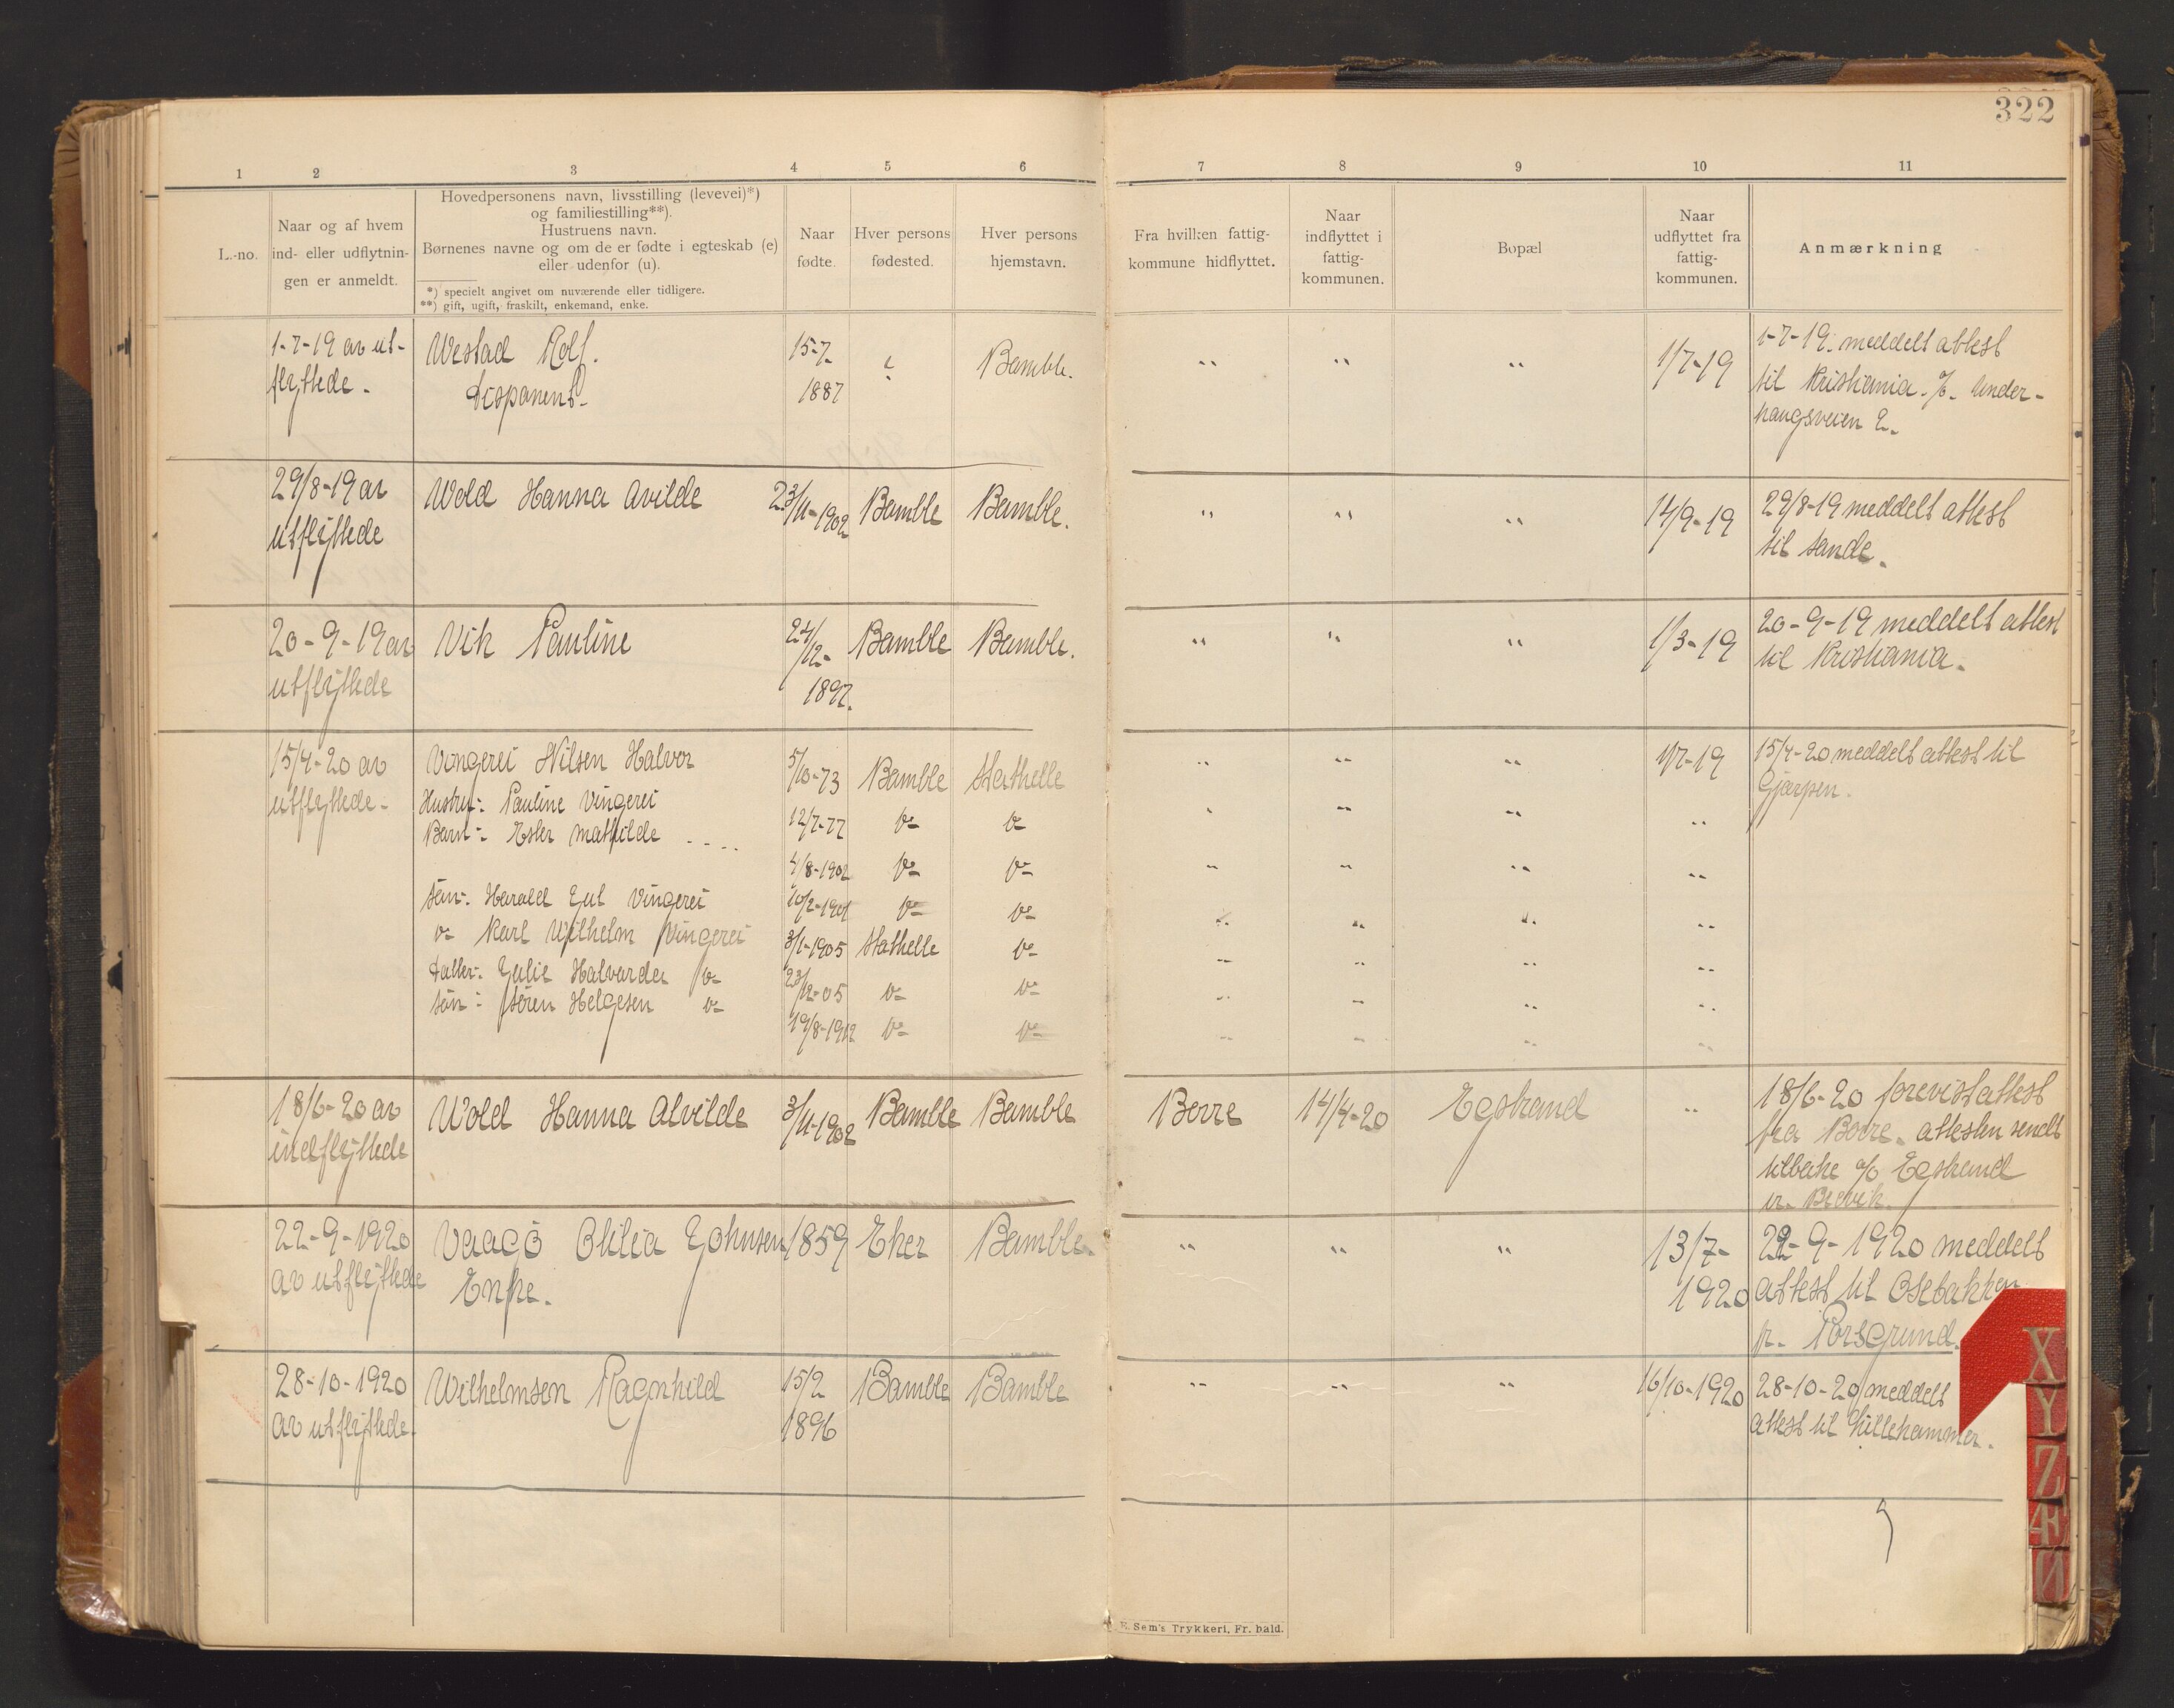 322
1 2 3 4 5 6 7 8 9 10 11
L.-no.
Naar og af hvem
ind- eller udflytnin-
gen er anmeldt.
Hovedpersonens navn, livsstilling (levevei)*)
og familiestilling**).
Hustruens navn.
Børnenes navne og om de er fødte i egteskab (e)
eller udenfor (u).
*) specielt angivet om nuværende eller tidligere.
**) gift, ugift, fraskilt, enkemand, enke.
Naar
fødte.
Hver persons
fødested.
Hver persons
hjemstavn.
Fra hvilken fattig-
kommune hidflyttet.
Naar
indflyttet i
fattig-
kommunen.
Bopæl
Naar
udflyttet fra
fattig-
kommunen.
Anmærkning
1-7-19 av ut-
flyttede.
Westad Rolf.
Disponent.
15-7-
1887
Bamble.
" " "
1/7-19
1-7-19. meddelt attest
til Kristiania. %. Under-
haugsveien 2.
29/8-19 av
utflyttede
Wold Hanna Avilde
23/11-1902
Bamble
Bamble.
" " "
14/9-19
29/8-19 meddelt attest
til Sande.
20-9-19 av
utflyttede
Vik Pauline
24/12-
1897.
Bamble
Bamble.
" " "
1/3-19
20-9-19 meddelt attest
til Kristiania.
15/4-20 av
utflyttede.
Vingerei Nilsen Halvor
5/10-73 Bamble Stathelle
" " "
1/7-19
15/4-20 meddelt attest til
Gjerpen.
Hustru: Pauline Vingerei
12/7-77 do do
" " " "
Barn: Ester Mathilde - - - -
4/8-1902 do do
" " " "
Søn: Harald Jul Vingerei
10/2-1901 do do
" " " "
do Karl Wilhelm Vingerei
3/1-1905 Stathelle do
" " " "
Datter: Julie Halvardea do
23/12-05 do do
" " " "
Søn: Søren Helgesen do
19/8-1912 do do
" " " "
18/6-20 av
indflyttede
Wold Hanna Alvilde
3/11-1902
Bamble
Bamble
Borre
14/4-20
Egstrand
"
18/6-20 forevist attest
fra Borre. attesten sendt
tilbake % Egstrand
pr. Brevik.
22-9-1920
av utflyttede
Vaagø Otilia Johnsen
Enke.
1859
Eker
Bamble.
" " "
13/7-
1920
22-9-1920 meddelt
attest til Osebakken
pr. Porsgrund.
28-10-1920
av utflyttede.
Wilhelmsen Ragnhild
15/2
1896
Bamble
Bamble
" " "
16/10-1920
28-10-20 meddelt
attest til Lillehammer.
E. Sem's Trykkeri, Fr. hald.
X
Y
Z
Æ